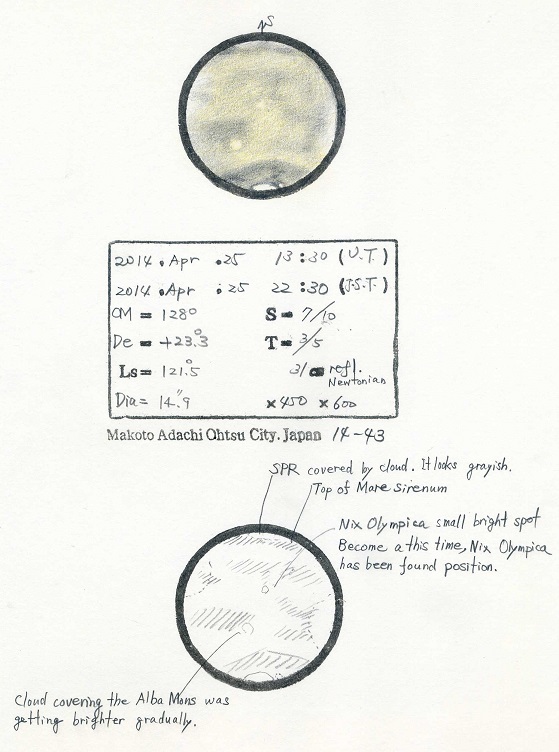 S
2014.Apr.25 13:30 (U.T.)
2014.Apr.25 22:30 (J.S.T.)
CM = 128° S = 7/10
De = +23.3° T = 3/5
Ls = 121.5° 31 refl.
Newtonian
Dia = 14".9 ×450 ×600
Makoto Adachi Ohtsu City. Japan 14-43
SPR covered by cloud. It looks grayish.
Top of Mare Sirenum
Nix Olympica small bright spot
Become a this time, Nix Olympica
has been found position.
Cloud covering the Alba Mons was
getting brighter gradually.